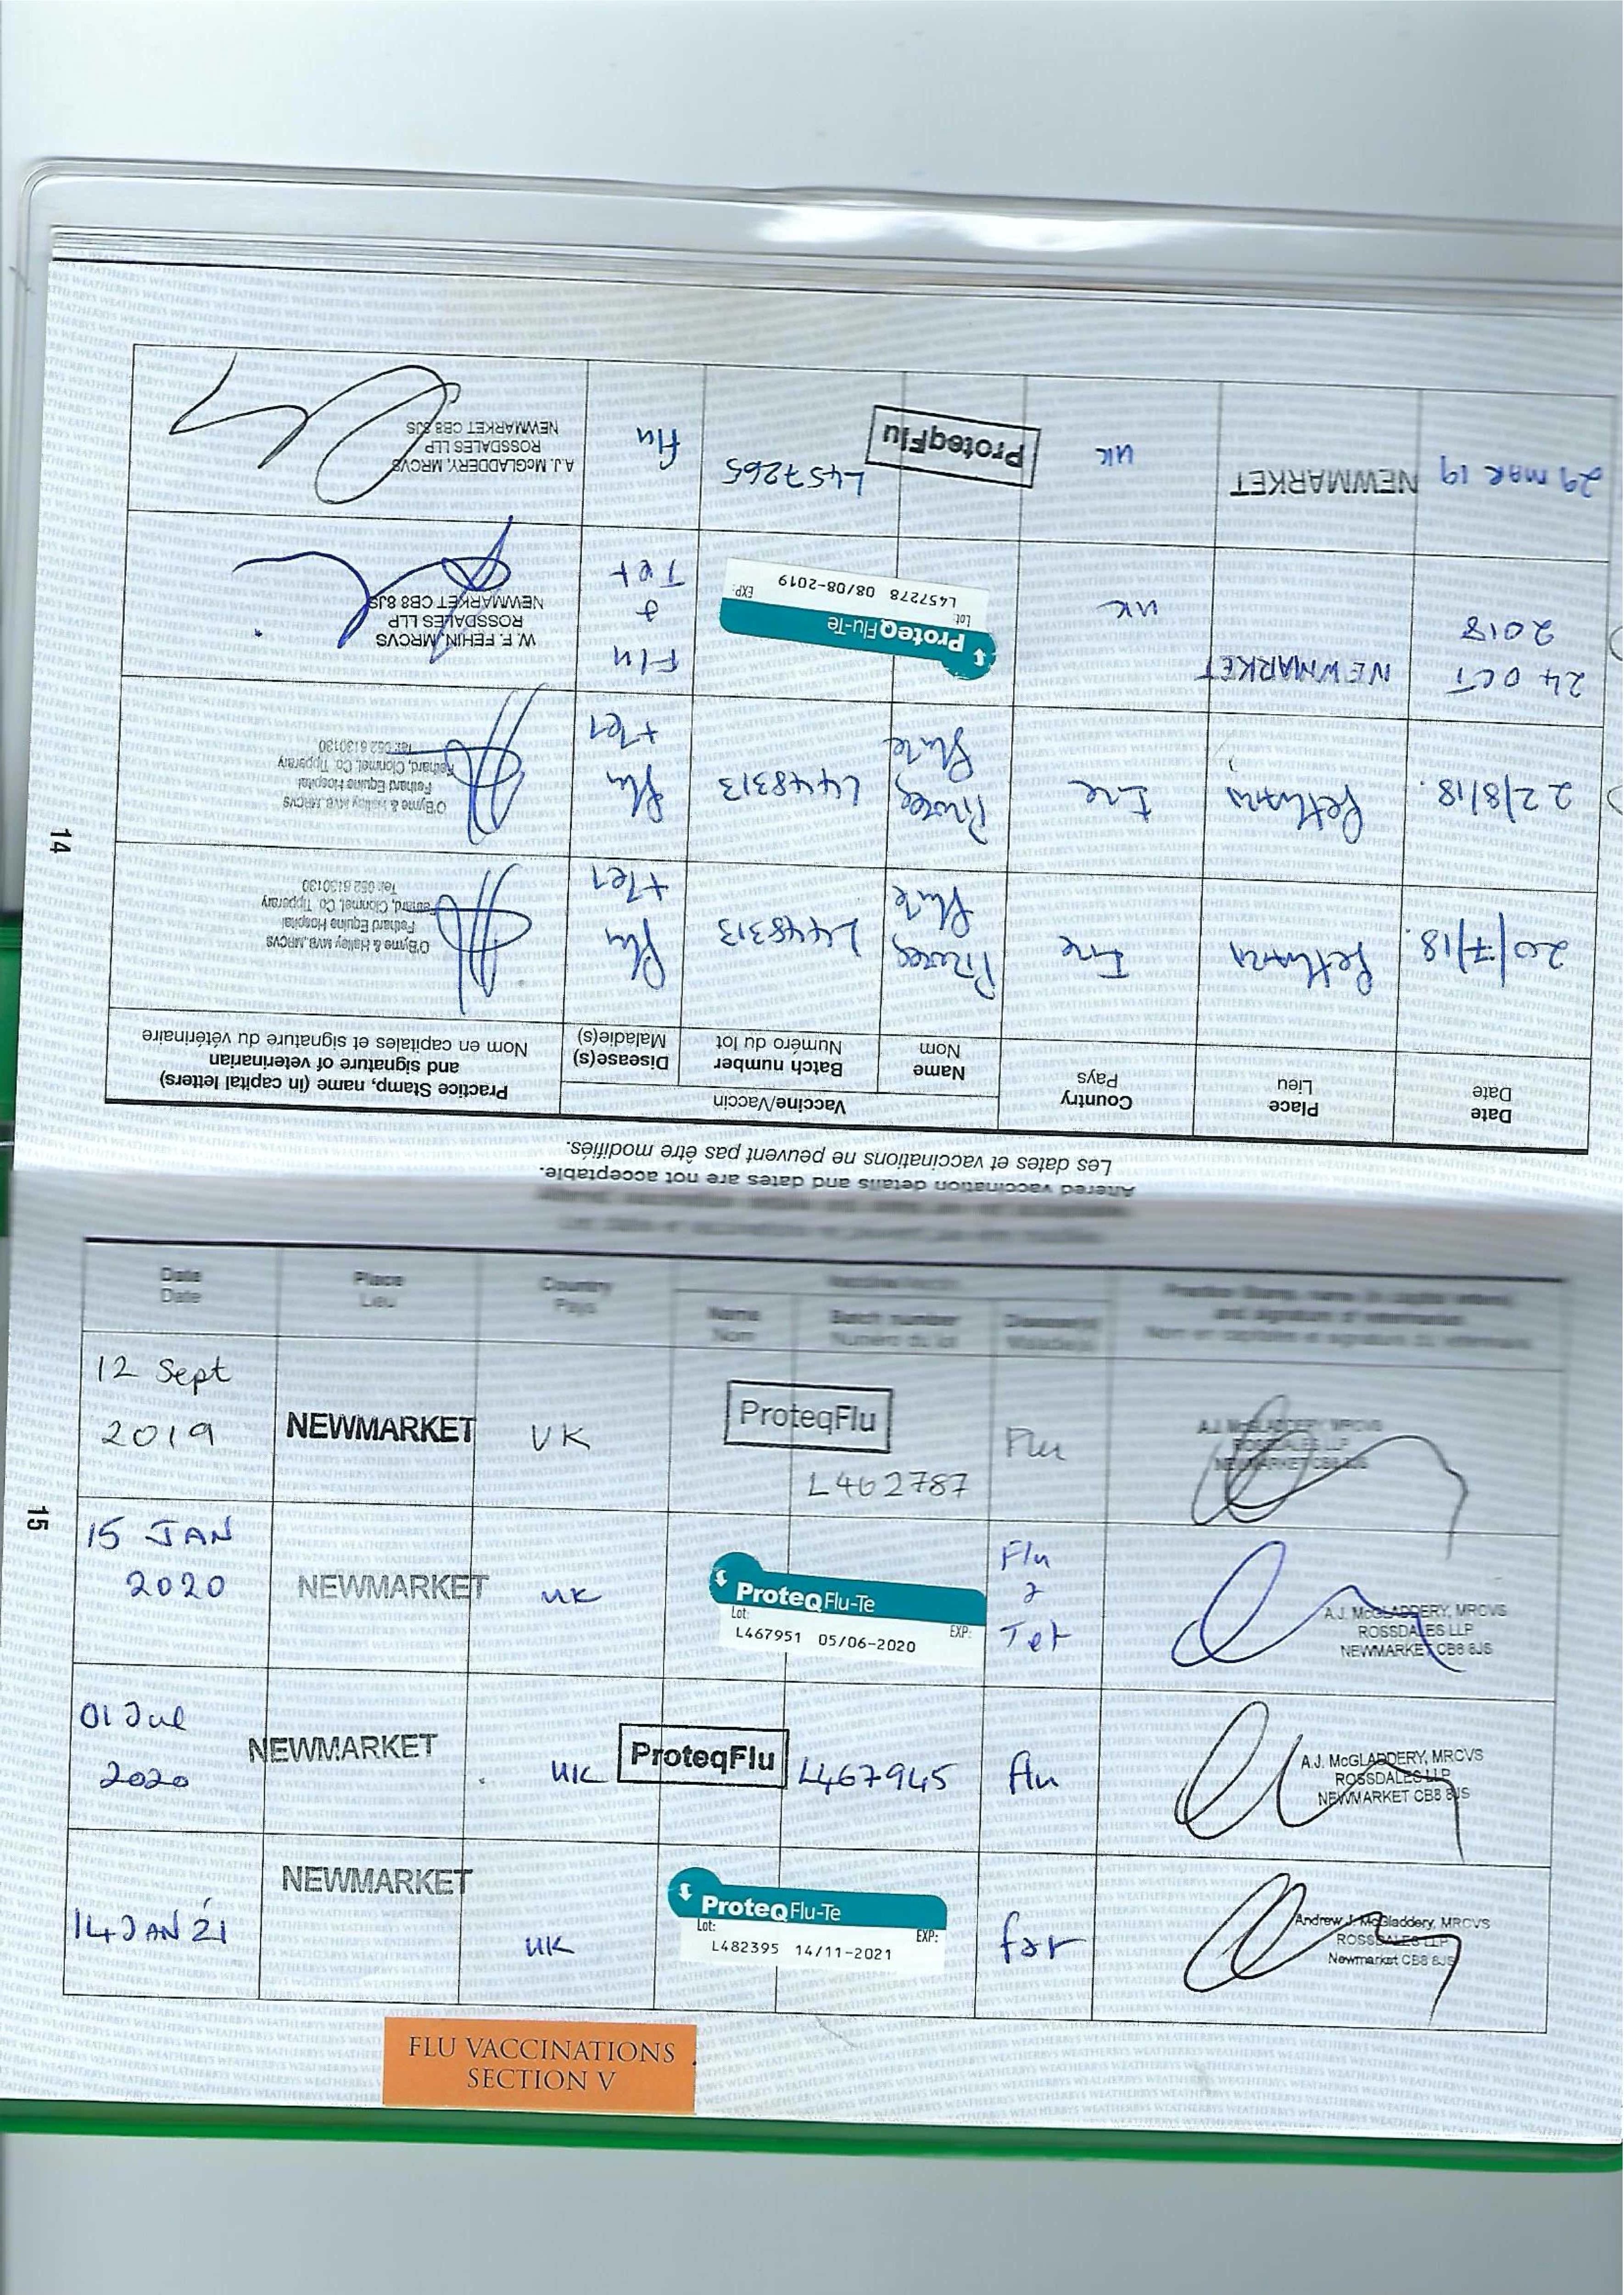 Altered vaccination details and dates are not acceptable.
Les dates et vaccinations ne peuvent pas être modifiés.
Date
Date
Place
Lieu
Country
Pays
Vaccine/Vaccin
Name
Nom
Batch number
Numéro du lot
Disease(s)
Maladie(s)
Practice Stamp, name (in capital letters)
and signature of veterinarian
Nom en capitales et signature du vétérinaire
20/7/18.
Ire
Proteq
Flu Te
L448313
Flu
+Tet
O'Byrne & Halley MVB, MRCVS
Fethard Equine Hospital
Fethard, Clonmel, Co. Tipperary
Tel: 052 6130130
22/8/18.
Ire
Proteq
Flu Te
L448313
Flu
+Tet
O'Byrne & Halley MVB, MRCVS
Fethard Equine Hospital
Fethard, Clonmel, Co. Tipperary
Tel: 052 6130130
24 OCT
2018
NEWMARKET
UK
ProteqFlu-Te
Lot: EXP:
L457278 08/08-2019
Flu
&
Tet
W. F. FEHIN, MRCVS
ROSSDALES LLP
NEWMARKET CB8 8JS
29 MAR 19
NEWMARKET
UK
ProteqFlu
L457265
flu
A.J. McGLADDERY, MRCVS
ROSSDALES LLP
NEWMARKET CB8 8JS
14
Date
Date
Place
Lieu
Country
Pays
Name
Nom
Batch number
Numéro du lot
Disease(s)
Maladie(s)
12 Sept
2019
NEWMARKET
UK
ProteqFlu
L462787
Flu
A.J. McGLADDERY, MRCVS
ROSSDALES LLP
NEWMARKET CB8 8JS
15 JAN
2020
NEWMARKET
UK
ProteqFlu-Te
Lot: EXP:
L467951 05/06-2020
Flu
&
Tet
A.J. McGLADDERY, MRCVS
ROSSDALES LLP
NEWMARKET CB8 8JS
01 Jul
2020
NEWMARKET
UK
ProteqFlu
L467945
flu
A.J. McGLADDERY, MRCVS
ROSSDALES LLP
NEWMARKET CB8 8JS
14 JAN 21
NEWMARKET
UK
ProteqFlu-Te
Lot: EXP:
L482395 14/11-2021
Andrew J. McGladdery, MRCVS
ROSSDALES LLP
Newmarket CB8 8JS
15
FLU VACCINATIONS
SECTION V